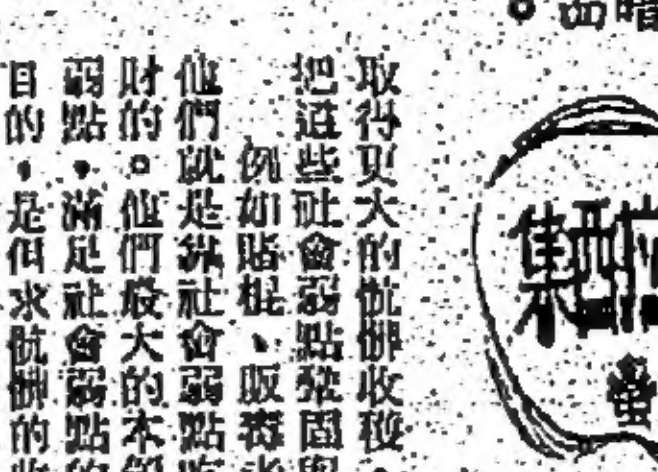 暗
集
螢
取得更大的骯髒收穫
把這些社會弱點鞏固與
例如賭棍、販毒
他們就是靠社會弱點吃
財的。他們最大的本領
弱點，滿足社會弱點的
目的，是但求骯髒的收